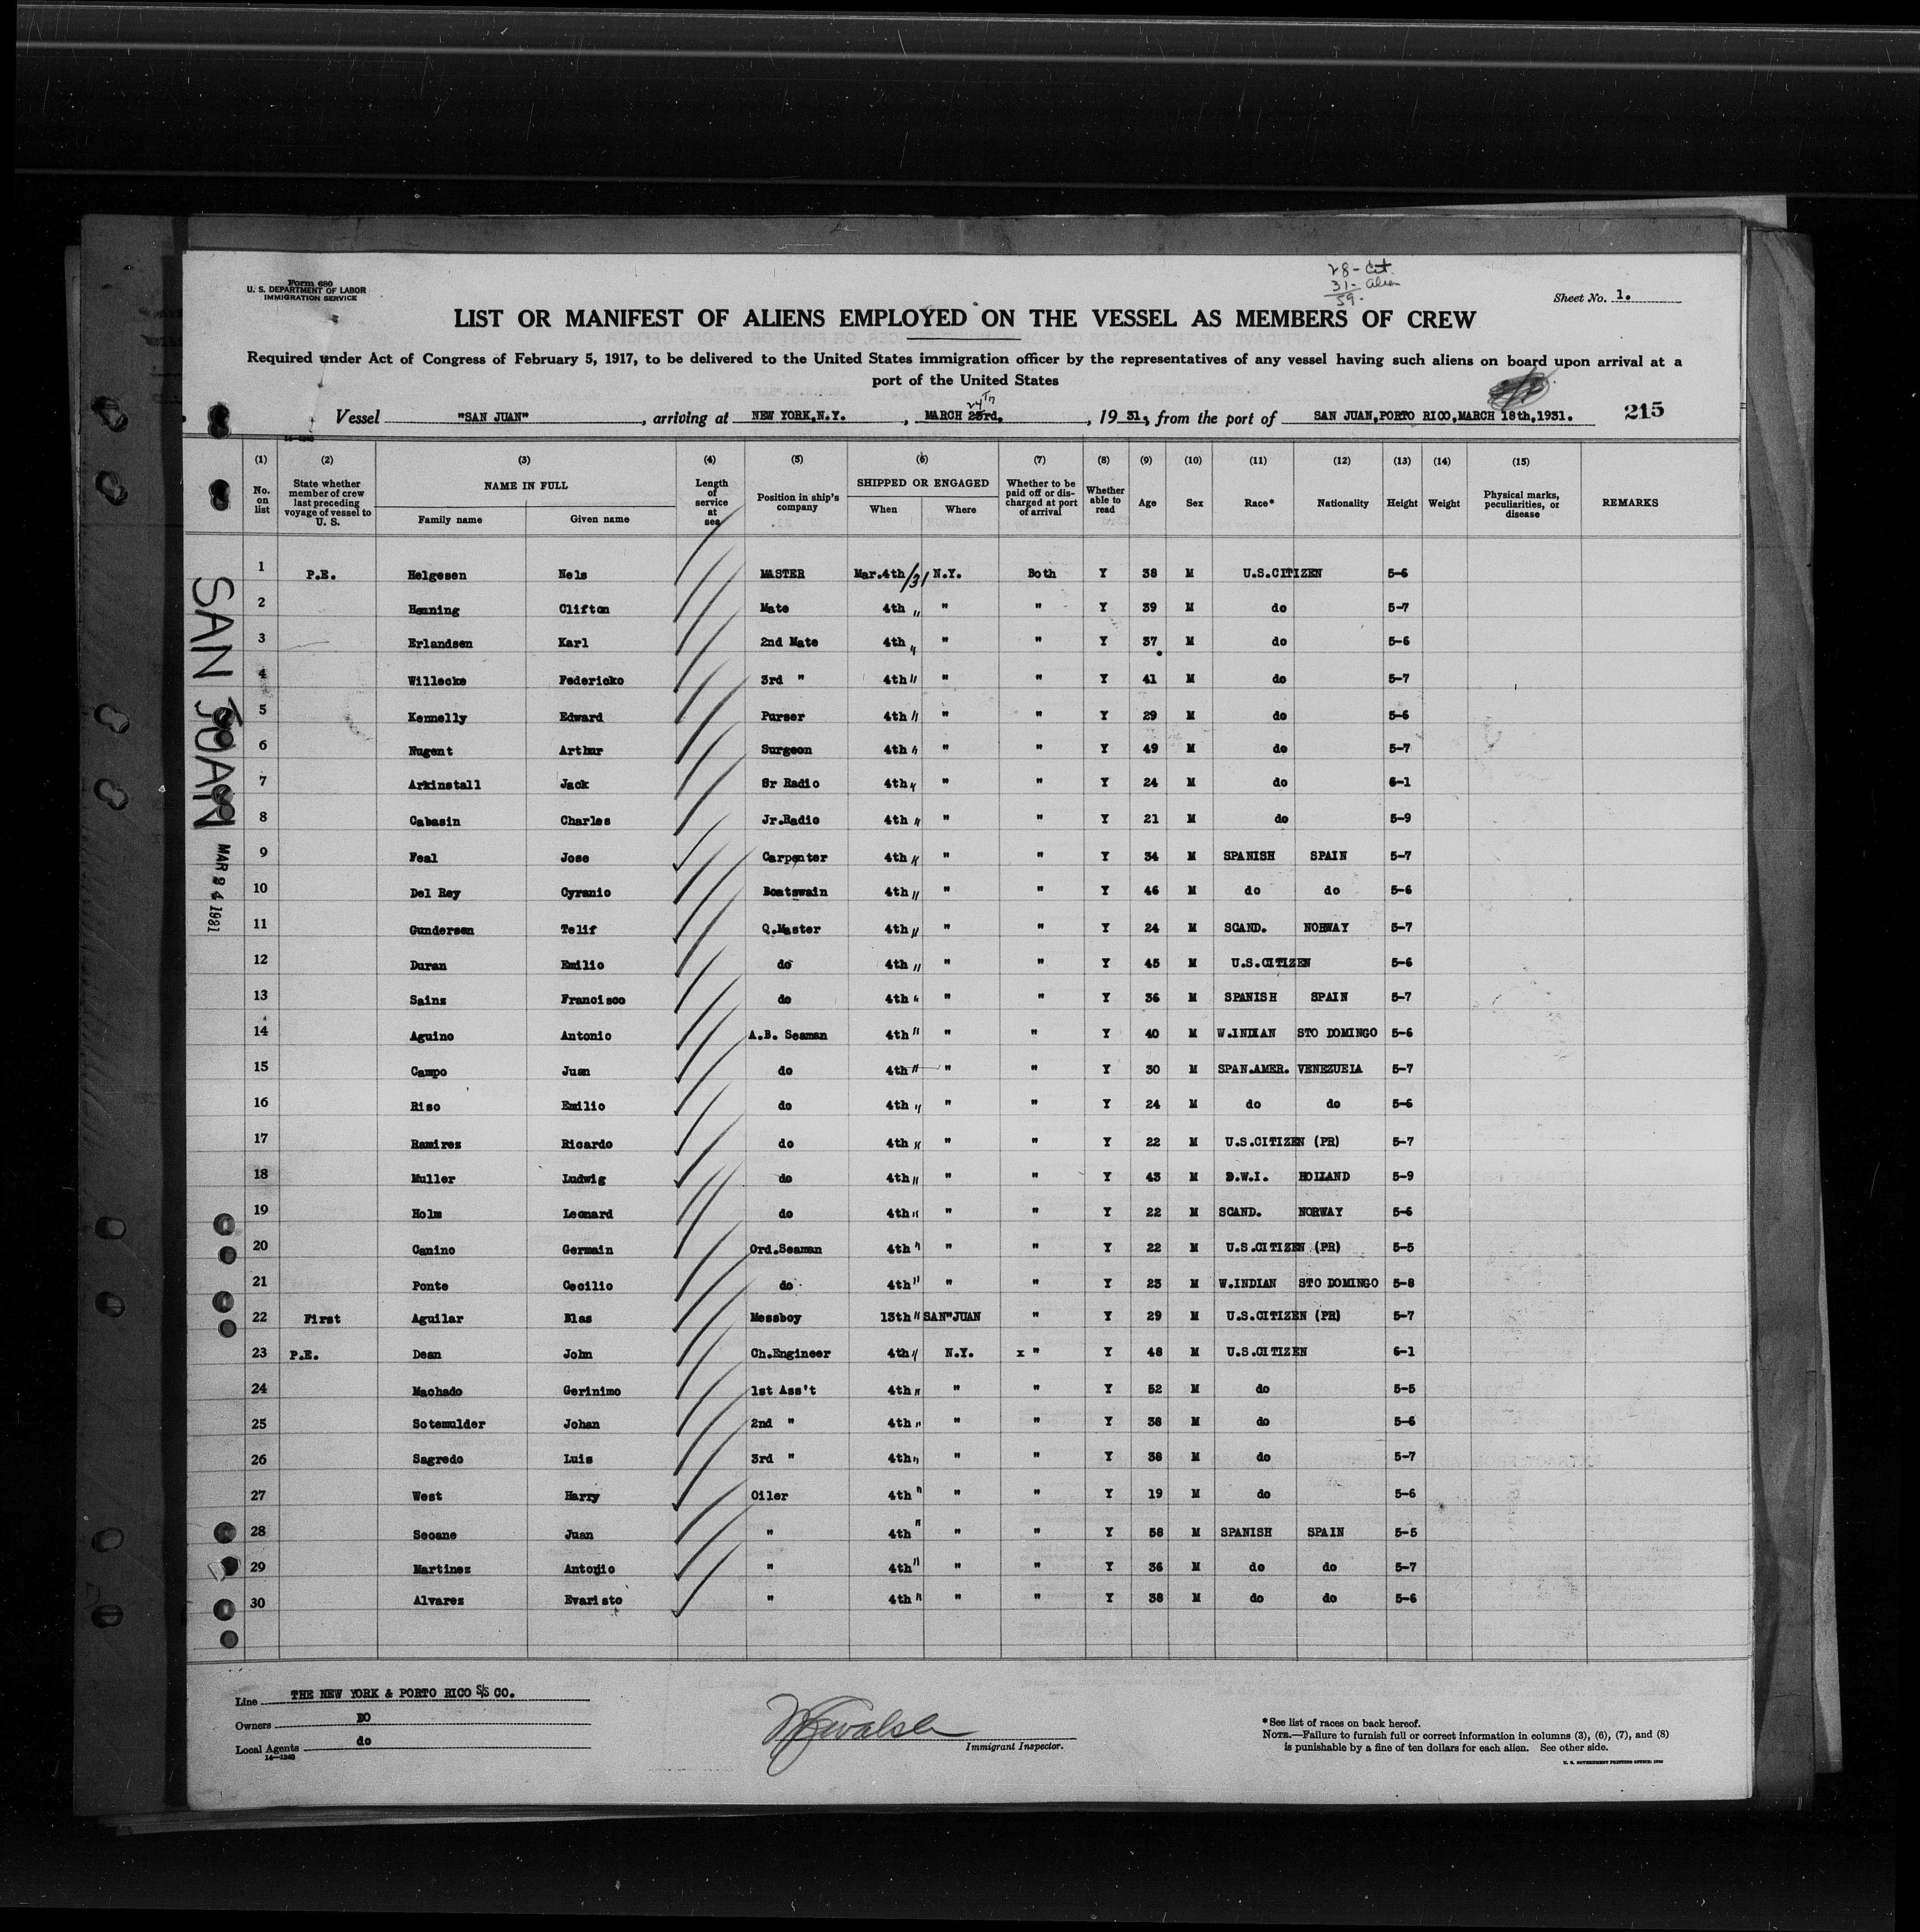 28- Cit.
31- Alien
59-
Form 680
U. S. DEPARTMENT OF LABOR
IMMIGRATION SERVICE
Sheet No. 1.
LIST OR MANIFEST OF ALIENS EMPLOYED ON THE VESSEL AS MEMBERS OF CREW
Required under Act of Congress of February 5, 1917, to be delivered to the United States immigration officer by the representatives of any vessel having such aliens on board upon arrival at a
port of the United States
24th
Vessel "SAN JUAN", arriving at NEW YORK,N.Y., MARCH 23rd, 1931, from the port of SAN JUAN,PORTO RICO,MARCH 18th,1931. 215
14—1240
(1) (2) (3) (4) (5) (6) (7) (8) (9) (10) (11) (12) (13) (14) (15)
No. on list State whether member of crew last preceding voyage of vessel to U. S. NAME IN FULL Family name Given name Length of service at sea Position in ship's company SHIPPED OR ENGAGED When Where Whether to be paid off or discharged at port of arrival Whether able to read Age Sex Race* Nationality Height Weight Physical marks, peculiarities, or disease REMARKS
1 P.E. Helgesen Nels MASTER Mar.4th/31 N.Y. Both Y 38 M U.S.CITIZEN 5-6
2 Henning Clifton Mate 4th " " " Y 39 M do 5-7
3 Erlandsen Karl 2nd Mate 4th " " " Y 37 M do 5-6
4 Willecke Federicko 3rd " 4th " " " Y 41 M do 5-7
5 Kennelly Edward Purser 4th " " " Y 29 M do 5-6
6 Nugent Arthur Surgeon 4th " " " Y 49 M do 5-7
7 Arkinstall Jack Sr Radio 4th " " " Y 24 M do 6-1
8 Cabasin Charles Jr.Radio 4th " " " Y 21 M do 5-9
9 Feal Jose Carpenter 4th " " " Y 34 M SPANISH SPAIN 5-7
10 Del Rey Cyranio Boatswain 4th " " " Y 46 M do do 5-6
11 Gundersen Telif Q.Master 4th " " " Y 24 M SCAND. NORWAY 5-7
12 Duran Emilio do 4th " " " Y 45 M U.S.CITIZEN 5-6
13 Sainz Francisco do 4th " " " Y 36 M SPANISH SPAIN 5-7
14 Aguino Antonio A.B. Seaman 4th " " " Y 40 M W.INDIAN STO DOMINGO 5-6
15 Campo Juan do 4th " " " Y 30 M SPAN.AMER. VENEZUELA 5-7
16 Riso Emilio do 4th " " " Y 24 M do do 5-6
17 Ramirez Ricardo do 4th " " " Y 22 M U.S.CITIZEN (PR) 5-7
18 Muller Ludwig do 4th " " " Y 43 M D.W.I. HOLLAND 5-9
19 Holm Leonard do 4th " " " Y 22 M SCAND. NORWAY 5-6
20 Canino Germain Ord.Seaman 4th " " " Y 22 M U.S.CITIZEN (PR) 5-5
21 Ponte Cecilio do 4th " " " Y 23 M W.INDIAN STO DOMINGO 5-8
22 First Aguilar Blas Messboy 13th " SAN"JUAN " Y 29 M U.S.CITIZEN (PR) 5-7
23 P.E. Dean John Ch.Engineer 4th " N.Y. x " Y 48 M U.S.CITIZEN 6-1
24 Machado Gerinimo 1st Ass't 4th " " " Y 52 M do 5-5
25 Sotemulder Johan 2nd " 4th " " " Y 38 M do 5-6
26 Sagredo Luis 3rd " 4th " " " Y 38 M do 5-7
27 West Harry Oiler 4th " " " Y 19 M do 5-6
28 Seoane Juan " 4th " " " Y 58 M SPANISH SPAIN 5-5
29 Martinez Antonio " 4th " " " Y 36 M do do 5-7
30 Alvarez Evaristo " 4th " " " Y 38 M do do 5-6
SAN JUAN
MAR 24 1931
Line THE NEW YORK & PORTO RICO S/S CO.
Owners DO
Local Agents do
14—1240
Immigrant Inspector.
*See list of races on back hereof.
NOTE.—Failure to furnish full or correct information in columns (3), (6), (7), and (8)
is punishable by a fine of ten dollars for each alien. See other side.